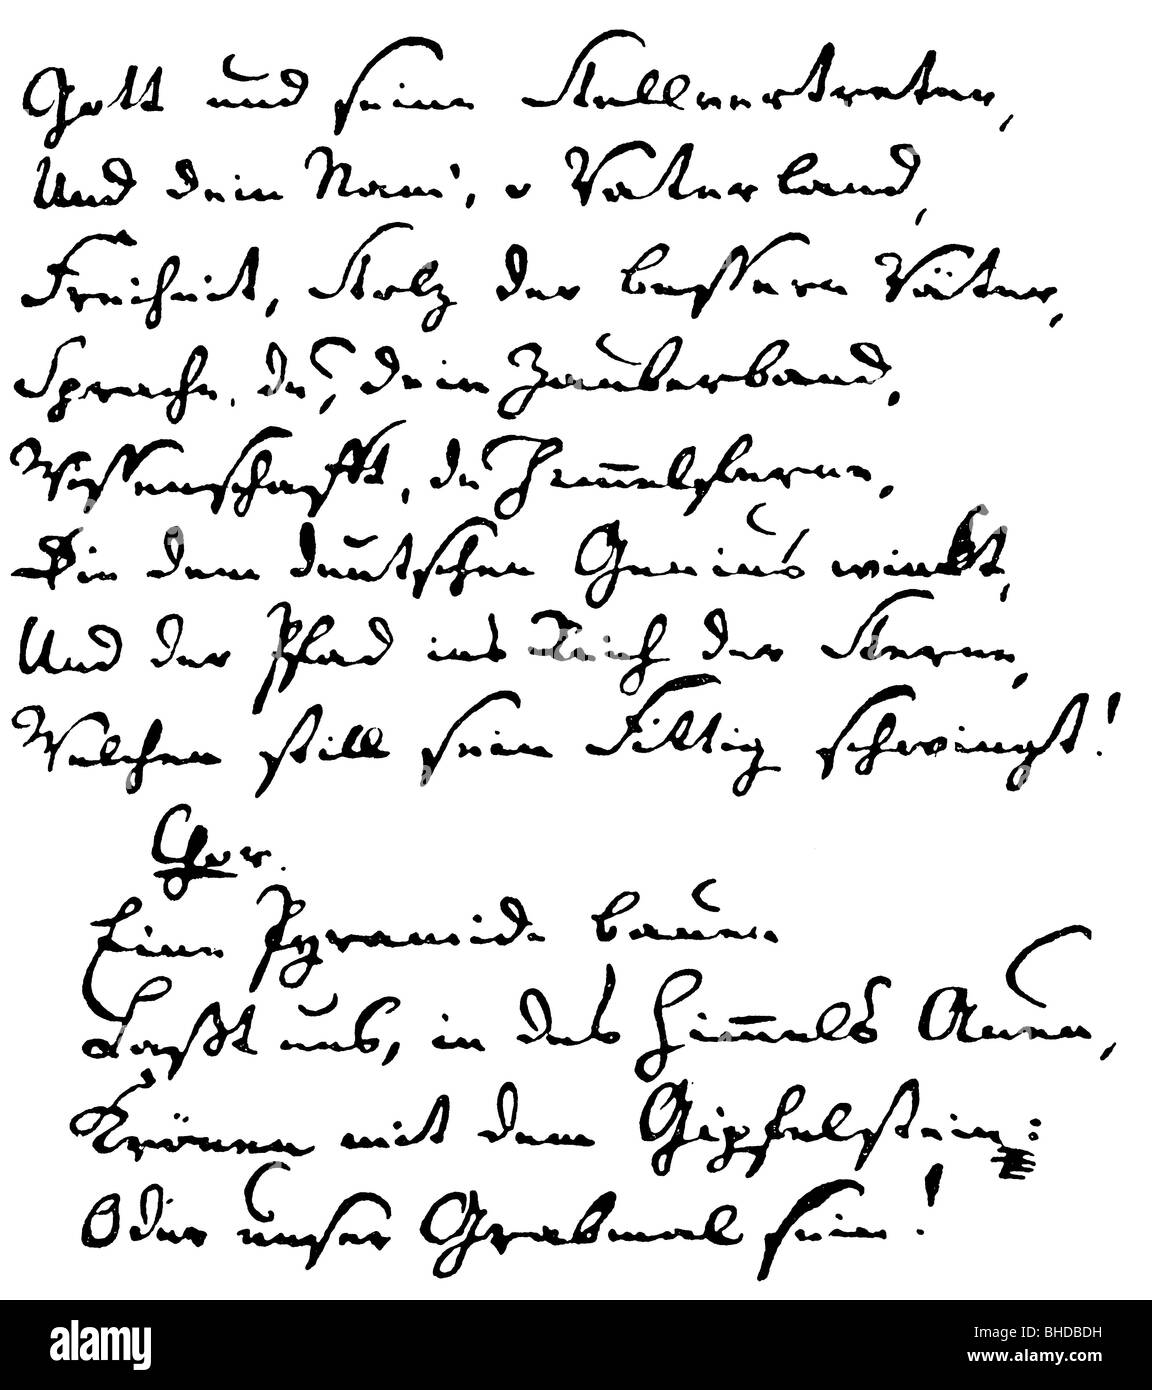 Gott und seine Stellvertreter,
Und dein Nam', o Vaterland,
Freiheit, Stolz der bessern Väter,
Sprache, du, dein Zauberband,
Wissenschafft, du Himmelsferne,
Die dem deutschen Genius winkt,
Und der Pfad ins Reich der Sterne,
Welchen still sein Fittig schwingt!
Chor.
Eine Pyramide bauen
Laßt uns, in des Himmels Auen,
Krönen mit dem Gipfelstein:
Oder unser Grabmal sein!
alamy
Image ID: BHDBDH
www.alamy.com